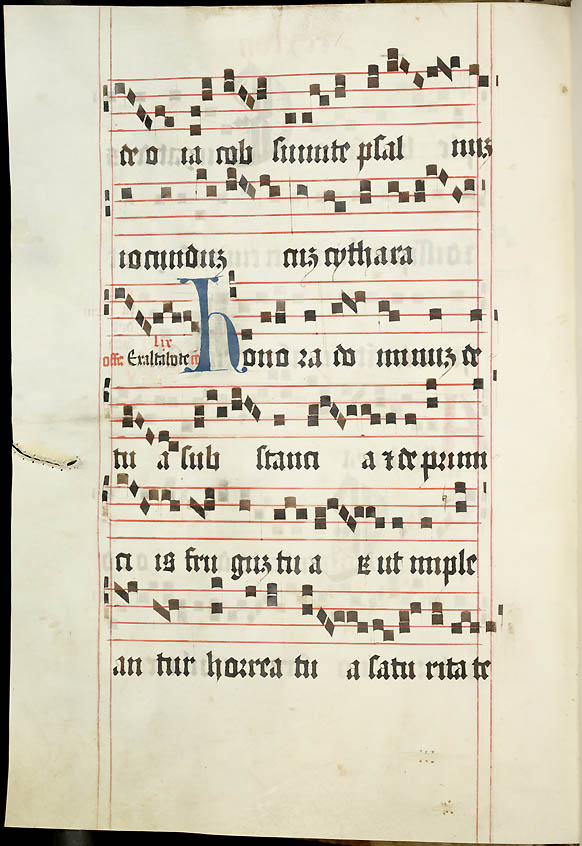 de o ia cob sumite psal muz
iocunduz cuz cythara
lix
offr. Exaltabo te co hono ra do minuz de
tu a sub stanci a z de primi
ci is fru guz tu a Et ut imple
an tur horrea tu a satu rita te